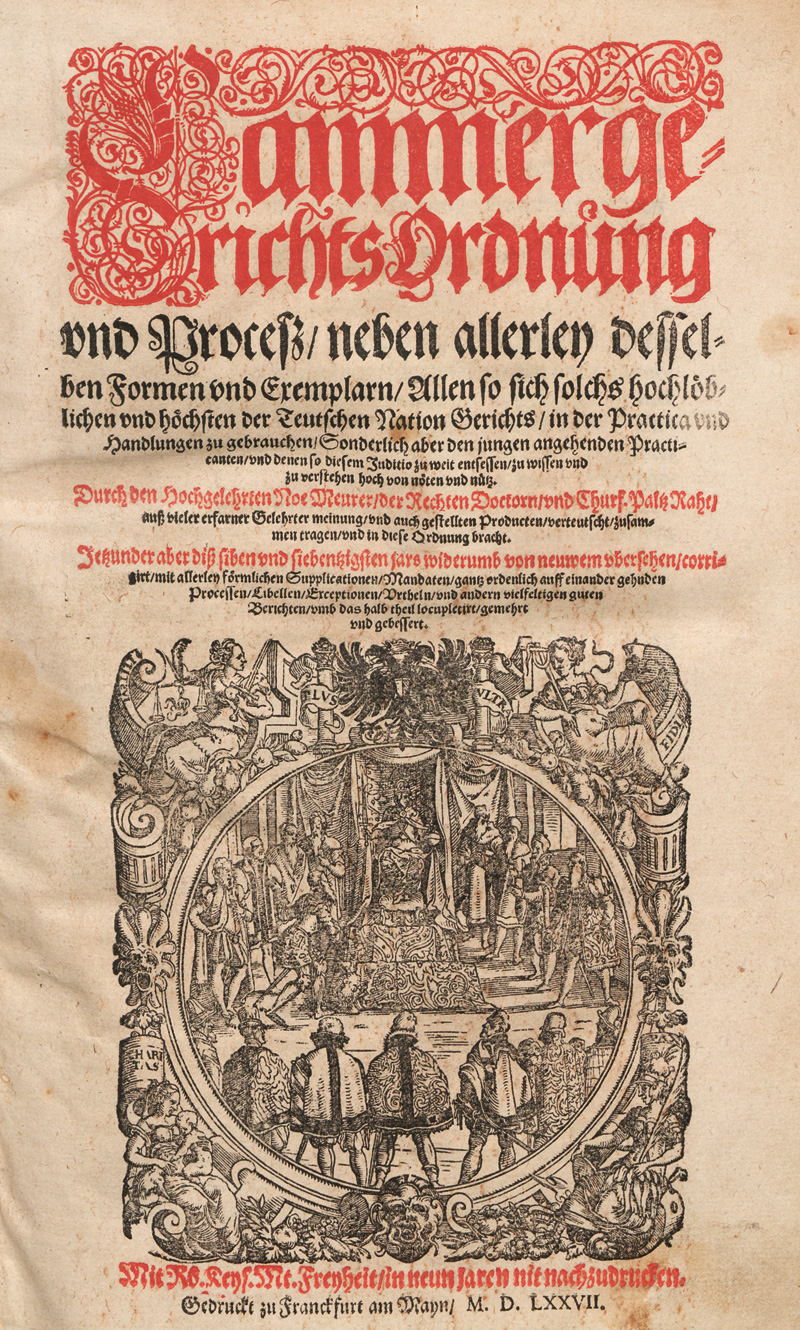 Cammerge-
richts Ordnung
vnd Proceß/ neben allerley dessel-
ben Formen vnd Exemplarn/ Allen so sich solchs hochlöb-
lichen vnd höchsten der Teutschen Nation Gerichts/ in der Practica vnd
Handlungen zu gebrauchen/ Sonderlich aber den jungen angehenden Practi-
canten/ vnd denen so diesem Juditio zu weit entsessen/ zu wissen vnd
zu verstehen hoch von nöten vnd nütz.
Durch den Hochgelehrten Noe Meurer/ der Rechten Doctorn/ vnd Churf. Paltz Raht/
auß vieler erfarner Gelehrter meinung/ vnd auch gestellten Producten/ verteutscht/ zusam-
men tragen/ vnd in diese Ordnung bracht.
Jetzunder aber diß siben vnd siebentzigsten jars widerumb von neuwem vbersehen/ corri-
girt/ mit allerley förmlichen Supplicationen/ Mandaten/ gantz ordenlich auff einander gehnden
Processen/ Libellen/ Exceptionen/ Vrtheln/ vnd andern vielfeltigen guten
Berichten/ vmb das halb theil locupletirt/ gemehrt
vnd gebessert.
PLVS
VLTR
FIDI
CHARI
TAS
Mit Rö. Keys. Mt. Freyheit/ in neun jaren nit nachzudrucken.
Gedruckt zu Franckfurt am Mayn/ M. D. LXXVII.